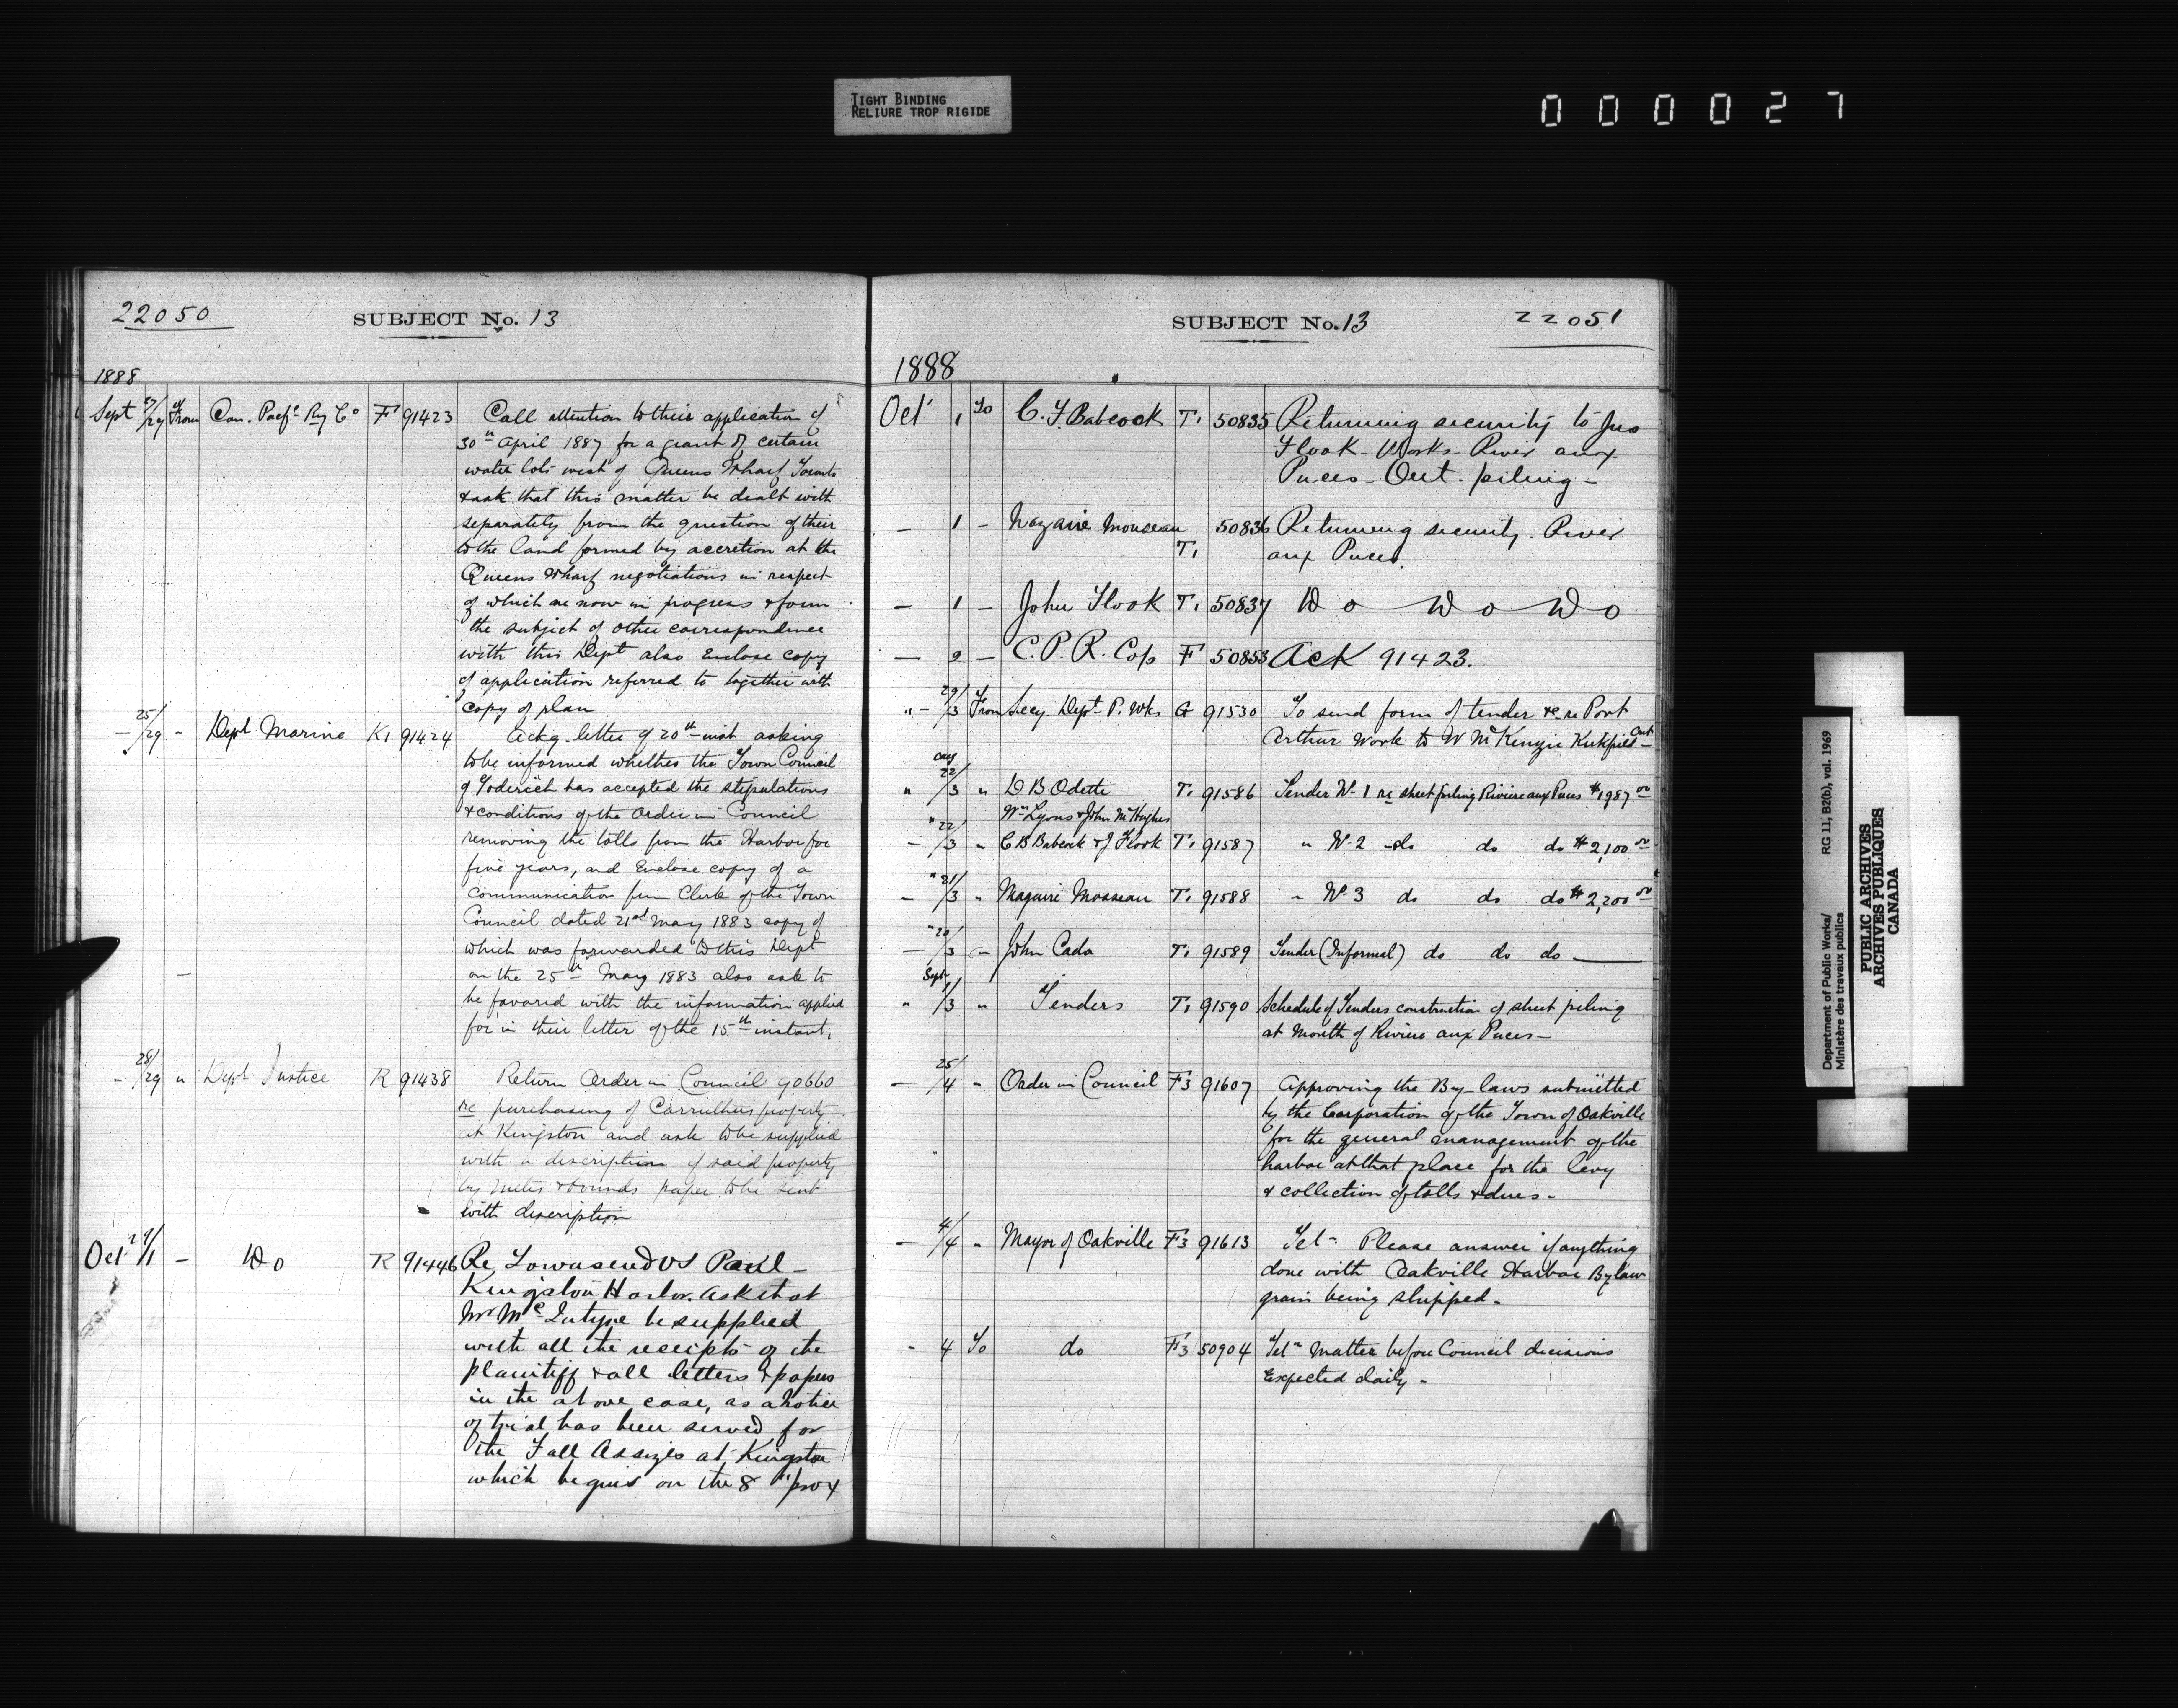 TIGHT BINDING
RELIURE TROP RIGIDE
000027
22050
SUBJECT No. 13
1888
Sept 27/29 From Can. Pacfc Ry Co F 91423 Call attention to their application of
30th April 1887 for a grant of certain
water lots west of Queens Wharf Toronto
& ask that this matter be dealt with
separately from the question of their
to the land formed by accretion at the
Queens Wharf negotiations in respect
of which are now in progress & form
the subject of other correspondence
with this Dept also Enclose copy
of application referred to together with
copy of plan
— 25/29 - Dept Marine K1 91424 Ackg letter of 20th inst asking
to be informed whether the Town Council
of Goderich has accepted the stipulations
& conditions of the Order in Council
removing the tolls from the Harbor for
five years, and Enclose copy of a
communication from Clerk of the Town
Council dated 21st May 1883 copy of
which was forwarded to this Dept
on the 25th May 1883 also ask to
be favored with the information applied
for in their letter of the 15th instant.
- 28/29 " Dept Justice R 91438 Return Order in Council 90660
re purchasing of Carruthers property
at Kingston and ask to be supplied
with a description of said property
by metes & bounds paper to be sent
with description
Oct 29/1 - Do R 91446 Re Townsend vs Paul -
Kingston Harbor. Ask that
Mr McIntyre be supplied
with all the receipts of the
plaintiff & all letters & papers
in the above case, as a notice
of trial has been served for
the Fall Assizes at Kingston
which begins on the 8th prox
SUBJECT No. 13
22051
1888
Oct 1 To C. F. Babcock T. 50835 Returning security to Jno
Flook - Works - River aux
Puces - Ont. piling -
— 1 — Nazaire Mouseau T. 50836 Returning security. River
aux Puces.
— 1 — John Flook T. 50837 Do Do Do
— 2 — C. P. R. Coy F 50853 Ack 91423.
" - 29/3 From Secy. Dept. P. Wks G 91530 To send form of tender &c re Port
Arthur Work to W McKenzie Kirkfield Ont -
Aug
" 22/3 " D B Odette T. 91586 Tender No 1 re sheet piling Rivière aux Puces $1987 00
Wm Lyons & John McHughes
— "22/3 " C B Babcock & J Flook T. 91587 " No 2 do do do $2,100 00
— "21/3 " Maguire Mosseau T. 91588 " No 3 do do do $2,200 00
— "20/3 " John Cada T. 91589 Tender (Informal) do do do —
Sept
" 1/3 " Tenders T. 91590 Schedule of Tenders construction of sheet piling
at Mouth of Riviere aux Puces -
— 25/4 " Order in Council F3 91607 Approving the By-laws submitted
by the Corporation of the Town of Oakville
for the general management of the
harbor at that place for the levy
& collection of tolls & dues -
— 4/4 " Mayor of Oakville F3 91613 Teln Please answer if anything
done with Oakville Harbor Bylaw
grain being shipped -
- 4 To do F3 50904 Teln Matter before Council decisions
Expected daily -
Department of Public Works/
Ministère des travaux publics
RG 11, B2(b), vol. 1969
PUBLIC ARCHIVES
ARCHIVES PUBLIQUES
CANADA